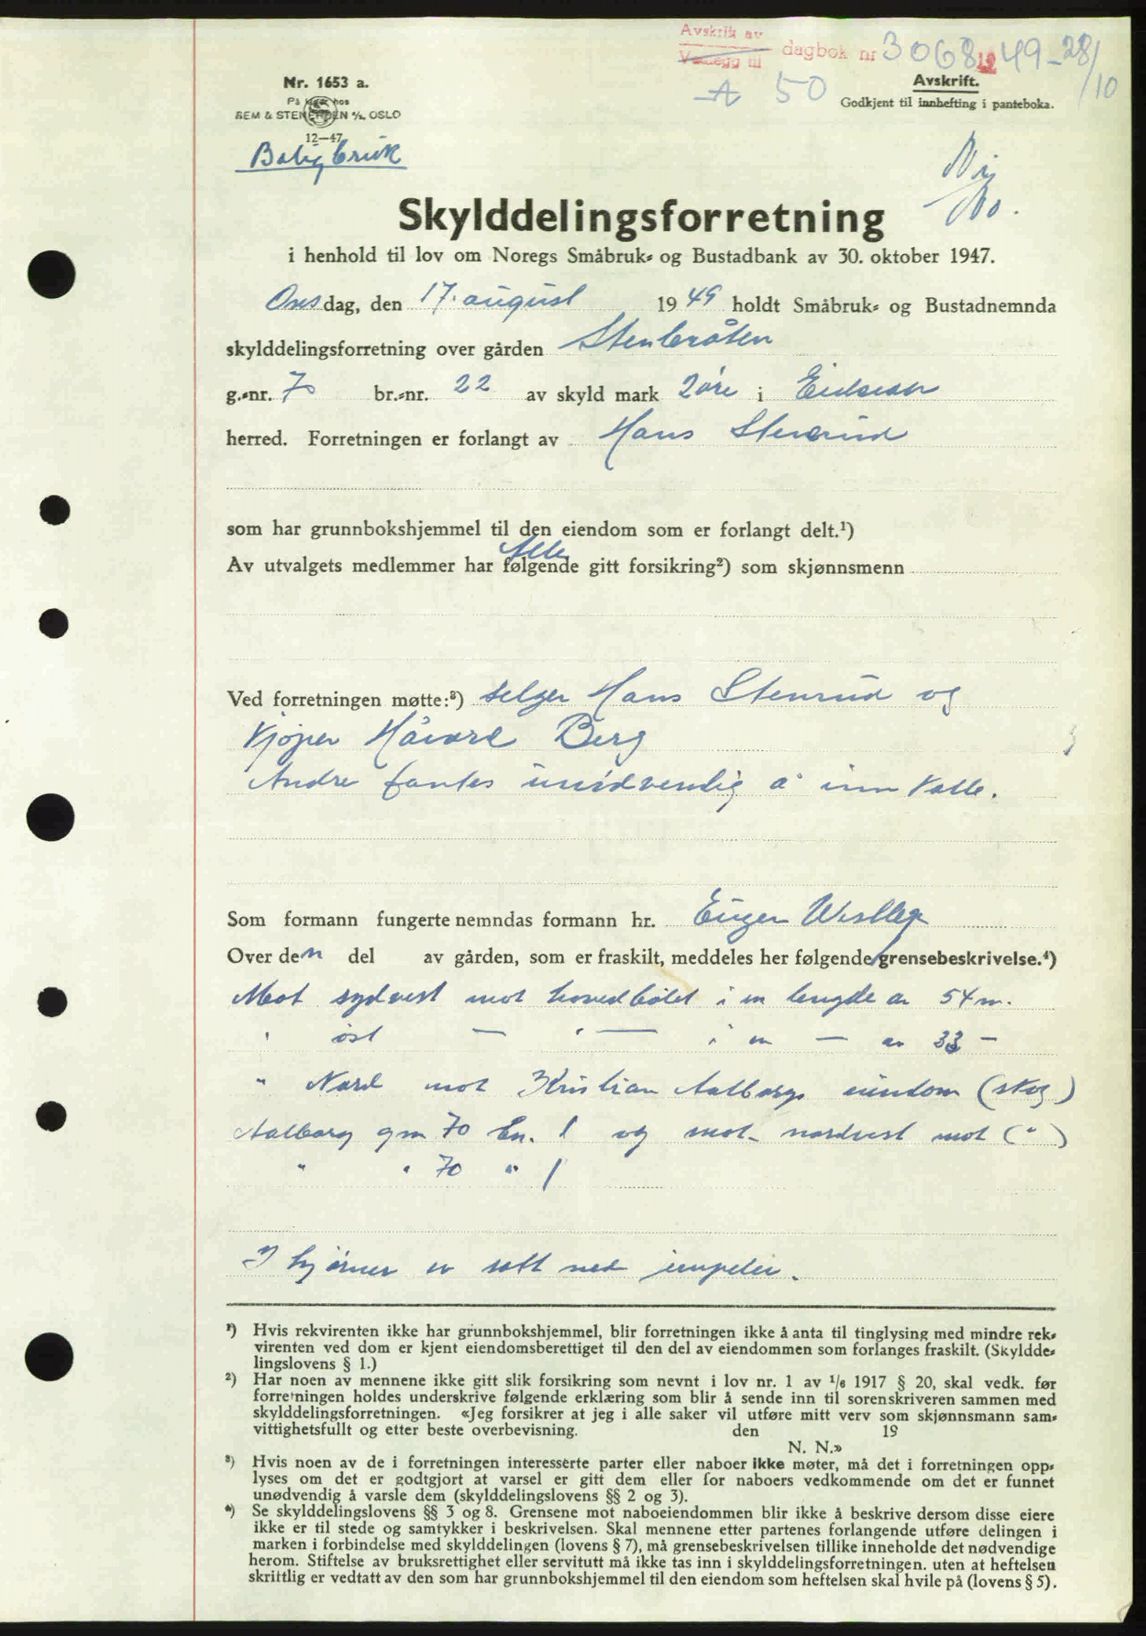 Avskrift av
Vedlegg til dagbok nr 3068 1949-28/10
A 50
Nr. 1653 a.
På lager hos
SEM & STENERSEN A/S, OSLO
12—47
Avskrift.
Godkjent til innhefting i panteboka.
Boligbruk
Skylddelingsforretning
i henhold til lov om Noregs Småbruk- og Bustadbank av 30. oktober 1947.
Onsdag, den 17. august 1949 holdt Småbruk- og Bustadnemnda
skylddelingsforretning over gården Stenbråten
g.-nr. 70 br.-nr. 22 av skyld mark 2 øre i Eidsvoll
herred. Forretningen er forlangt av Hans Stenrud
som har grunnbokshjemmel til den eiendom som er forlangt delt.¹)
Alle
Av utvalgets medlemmer har følgende gitt forsikring²) som skjønnsmenn
Ved forretningen møtte:³) selger Hans Stenrud og
Kjøper Håvard Berg
Andre fantes unødvendig å innkalle.
Som formann fungerte nemndas formann hr. Eugen
Over den del av gården, som er fraskilt, meddeles her følgende grensebeskrivelse.⁴)
Mot sydvest mot hovedbølet i en lengde av 54 m.
" øst — " — i en — av 33 —
" Nord mot Kristian Aalborgs eiendom (skog)
Aalborg gnr 70 bn. 1 og mot nordvest mot (")
" " 70 " 1
I hjørner er satt ned jernpeler.
¹) Hvis rekvirenten ikke har grunnbokshjemmel, blir forretningen ikke å anta til tinglysing med mindre rek-
virenten ved dom er kjent eiendomsberettiget til den del av eiendommen som forlanges fraskilt. (Skyldde-
lingslovens § 1.)
²) Har noen av mennene ikke gitt slik forsikring som nevnt i lov nr. 1 av 1/6 1917 § 20, skal vedk. før
forretningen holdes underskrive følgende erklæring som blir å sende inn til sorenskriveren sammen med
skylddelingsforretningen. «Jeg forsikrer at jeg i alle saker vil utføre mitt verv som skjønnsmann sam-
vittighetsfullt og etter beste overbevisning. den 19
N. N.»
³) Hvis noen av de i forretningen interesserte parter eller naboer ikke møter, må det i forretningen opp-
lyses om det er godtgjort at varsel er gitt dem eller for naboers vedkommende om det er funnet
unødvendig å varsle dem (skylddelingslovens §§ 2 og 3).
⁴) Se skylddelingslovens §§ 3 og 8. Grensene mot naboeiendommen blir ikke å beskrive dersom disse eiere
ikke er til stede og samtykker i beskrivelsen. Skal mennene etter partenes forlangende utføre delingen i
marken i forbindelse med skylddelingen (lovens § 7), må grensebeskrivelsen tillike inneholde det nødvendige
herom. Stiftelse av bruksrettighet eller servitutt må ikke tas inn i skylddelingsforretningen. uten at heftelsen
skriftlig er vedtatt av den som har grunnbokshjemmel til den eiendom som heftelsen skal hvile på (lovens § 5).